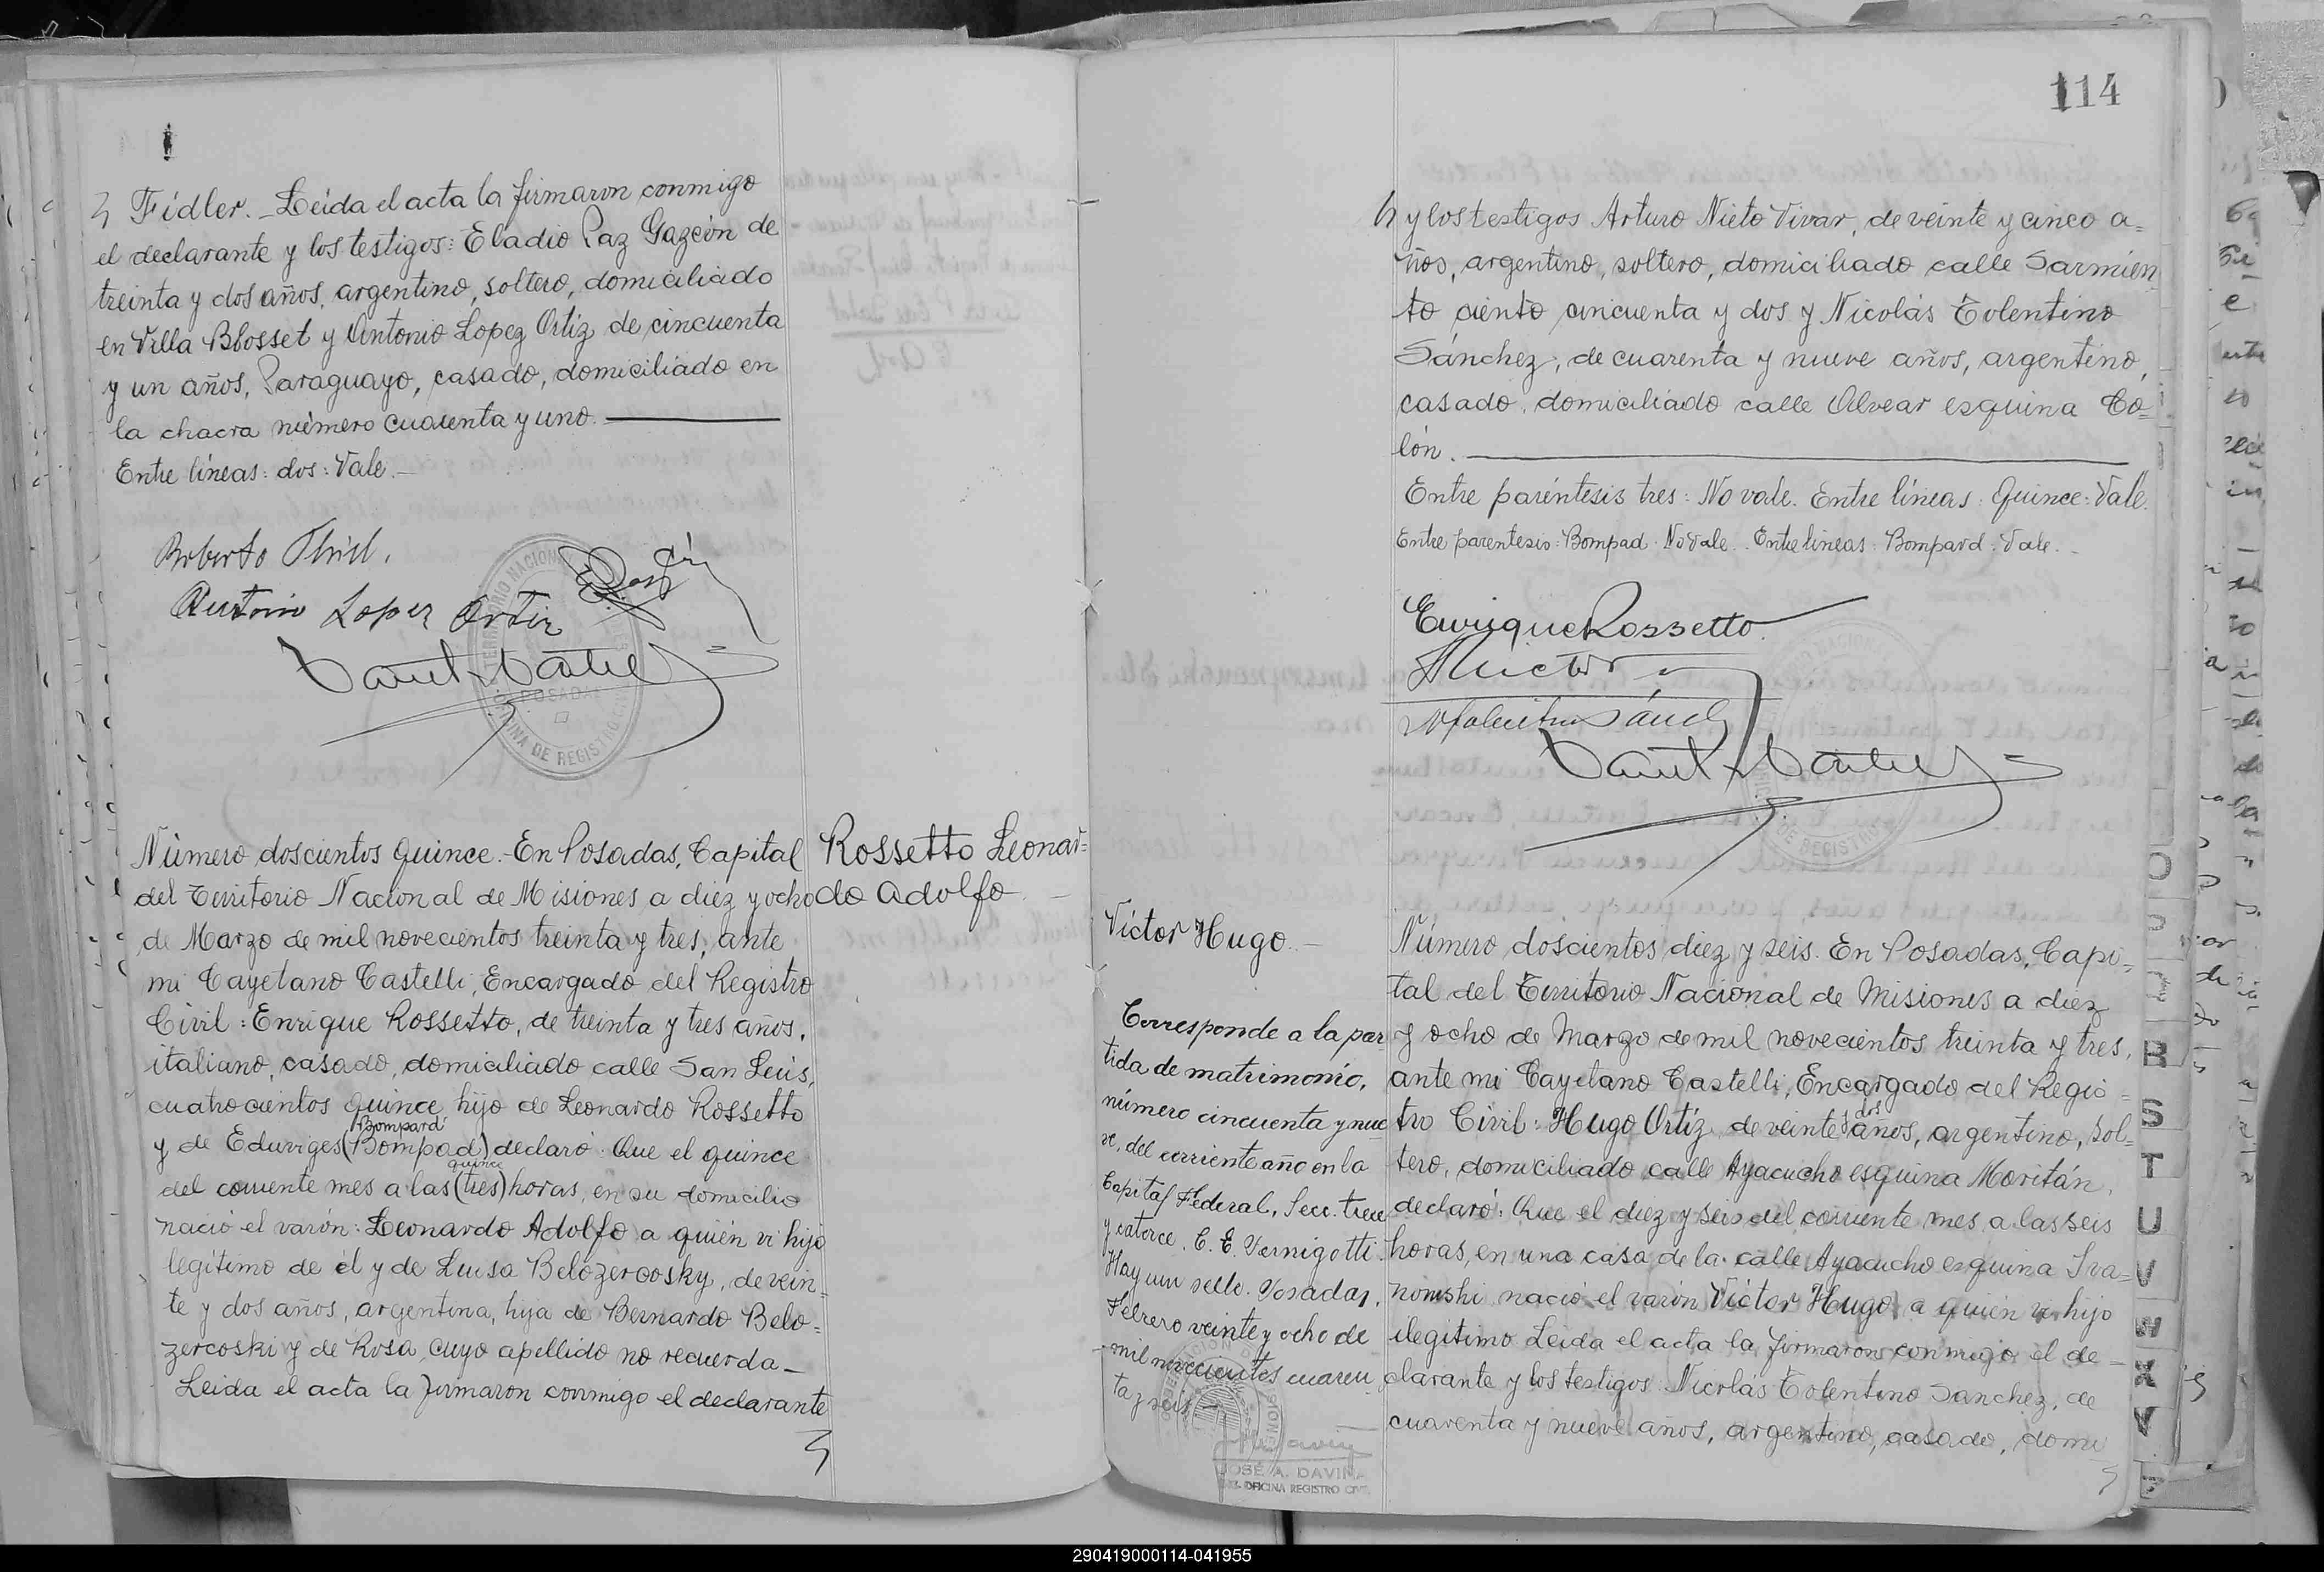 Fidler. - Leida el acta la firmaron conmigo
el declarante y los testigos: Eladio Paz Gazcón de
treinta y dos años, argentino, soltero, domiciliado
en Villa Blosset y Antonio Lopez Ortiz de cincuenta
y un años, Paraguayo, casado, domiciliado en
la chacra número cuarenta y uno.
Entre líneas: dos: Vale. -
Roberto
Antonio Lopez Ortiz
TERRITORIO NACIONAL
POSADAS
OFICINA DE REGISTRO CIVIL
Número doscientos quince. - En Posadas, Capital
del Territorio Nacional de Misiones a diez y ocho
de Marzo de mil novecientos treinta y tres, ante
mi Cayetano Castelli, Encargado del Registro
Civil: Enrique Rossetto, de treinta y tres años,
italiano, casado, domiciliado calle San Luis,
cuatrocientos quince, hijo de Leonardo Rossetto
Bompard
y de Eduviges (Bompad) declaró: Que el quince
quince
del corriente mes a las (tres) horas, en su domicilio
nació el varón: Leonardo Adolfo a quién vi hijo
legítimo de él y de Luisa Belozercosky, de vein-
te y dos años, argentina, hija de Bernardo Belo=
zercoski y de Rosa, cuyo apellido no recuerda -
Leida el acta la firmaron conmigo el declarante
Rossetto Leonar=
do Adolfo
114
y los testigos Arturo Nieto Vivar, de veinte y cinco a=
ños, argentino, soltero, domiciliado calle Sarmien
to ciento cincuenta y dos y Nicolás Tolentino
Sánchez, de cuarenta y nueve años, argentino,
casado, domiciliado calle Alvear esquina Co=
lón.
Entre paréntesis tres: No vale. Entre líneas: Quince: Vale.
Entre parentesis: Bompad: No Vale. Entre líneas: Bompard: Vale. -
Enrique Rossetto
Víctor Hugo. -
Corresponde a la par
tida de matrimonio,
número cincuenta y nue
ve, del corriente año en la
Capital Federal, Secc. trece
y catorce. C. E. Vernigotti.
Hay un sello. Posadas,
Febrero veinte y ocho de
mil novecientos cuaren
ta y seis
JOSÉ A. DAVIÑA
OFICINA REGISTRO CIVIL
Número doscientos diez y seis. En Posadas, Capi=
tal del Territorio Nacional de Misiones a diez
y ocho de Marzo de mil novecientos treinta y tres,
ante mi Cayetano Castelli, Encargado del Regis=
y dos
tro Civil: Hugo Ortíz de veinte años, argentino, sol=
tero, domiciliado calle Ayacucho esquina Moritán,
declaró: Que el diez y seis del corriente mes a las seis
horas, en una casa de la calle Ayacucho esquina Iva=
nowski nació el varón Víctor Hugo a quién vi hijo
ilegitimo Leida el acta la firmaron conmigo el de-
clarante y los testigos Nicolás Tolentino Sanchez, de
cuarenta y nueve años, argentino, casado, domi
B
S
T
U
V
W
X
Y
290419000114-041955